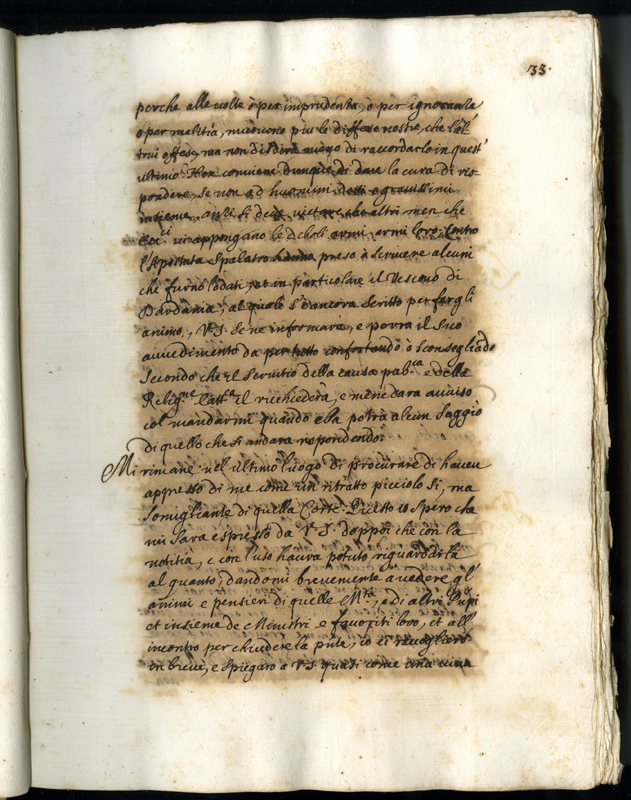 33.
perche alle volte ò per imprudenta, ò per ignoranta
ò per malitia, nuocono piu le diffese nostre, che l'al-
trui offese, ma non di dirà meno di raccordarlo in quest'
ultimo. Non conviene dunque di dare la cura di ris-
pondere, se non ad huomini dotti e gravissimi
insieme, altri men che
vi appongano le deboli armi loro. Contro
l'Apostata Spalatro hanno preso à scrivere alcuni
che furno lodati, et in particolare il Vescovo di
Dardania, al quale s'è ancora scritto per fargli
animo, V. S. se ne informarà, e potrà il suo
avvedimento da per tutto confortando ò sconsegliado
secondo che el servitio della causa pub.ca e della
Relig.ne Catt.ca il richiederà, e me ne darà avviso
col mandarmi quando ella potrà alcun saggio
di quello che si andarà rispondendo.
Mi rimane nel ultimo luogo di procurare di haver
appresso di me come un ritratto picciolo si, ma
somigliante di quella Corte. Questo io spero che
mi sarà espresso da V. S. doppoi che con la
notitia, e con l'uso haurà potuto riguardarla
al quanto, dandomi brevemente a vedere gl'
animi e pensieri di quelle M.tà, e di altri Prñpi
et insieme de Ministri e favoriti loro, et all'
incontro per chiudere la pñte, io ci raccogliero
in breve, e spiegaro a V. S. quasi come una